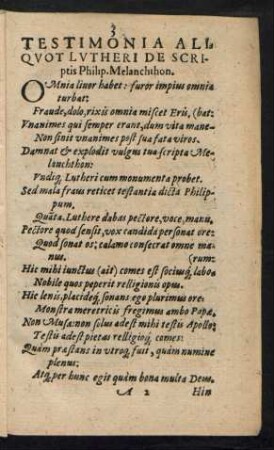 3
TESTIMONIA ALI
QVOT LVTHERI DE SCRI-
ptis Philip. Melanchthon.
OMnia liuor habet: furor impius omnia
turbat:
Fraude, dolo, rixis omnia miscet Eris, (bat:
Vnanimes qui semper erant, dum vita mane-
Non sinit vnanimes post sua fata viros.
Damnat & explodit vulgus tua scripta Me-
lanchthon:
Vndiq́; Lutheri cum monumenta probet.
Sed mala fraus reticet testantia dicta Philip-
pum.
Quãta, Luthere dabas pectore, voce, manu.
Pectore quod sensit, vox candida personat ore:
Quod sonat os: calamo consecrat omne ma-
nus. (rum:
Hic mihi iunctus (ait) comes est sociusq́; labo-
Nobile quos peperit religionis opus.
Hic lenis, placideq́; sonans ego plurimus ore:
Monstra meretricis fregimus ambo Papæ.
Non Musa: non solus adest mihi testis Apollo:
Testis adest pietas relligioq́; comes:
Quàm præstans in vtroq́; fuit, quàm numine
plenus:
Atq́; per hunc egit quàm bona multa Deus.
A 2 Hin